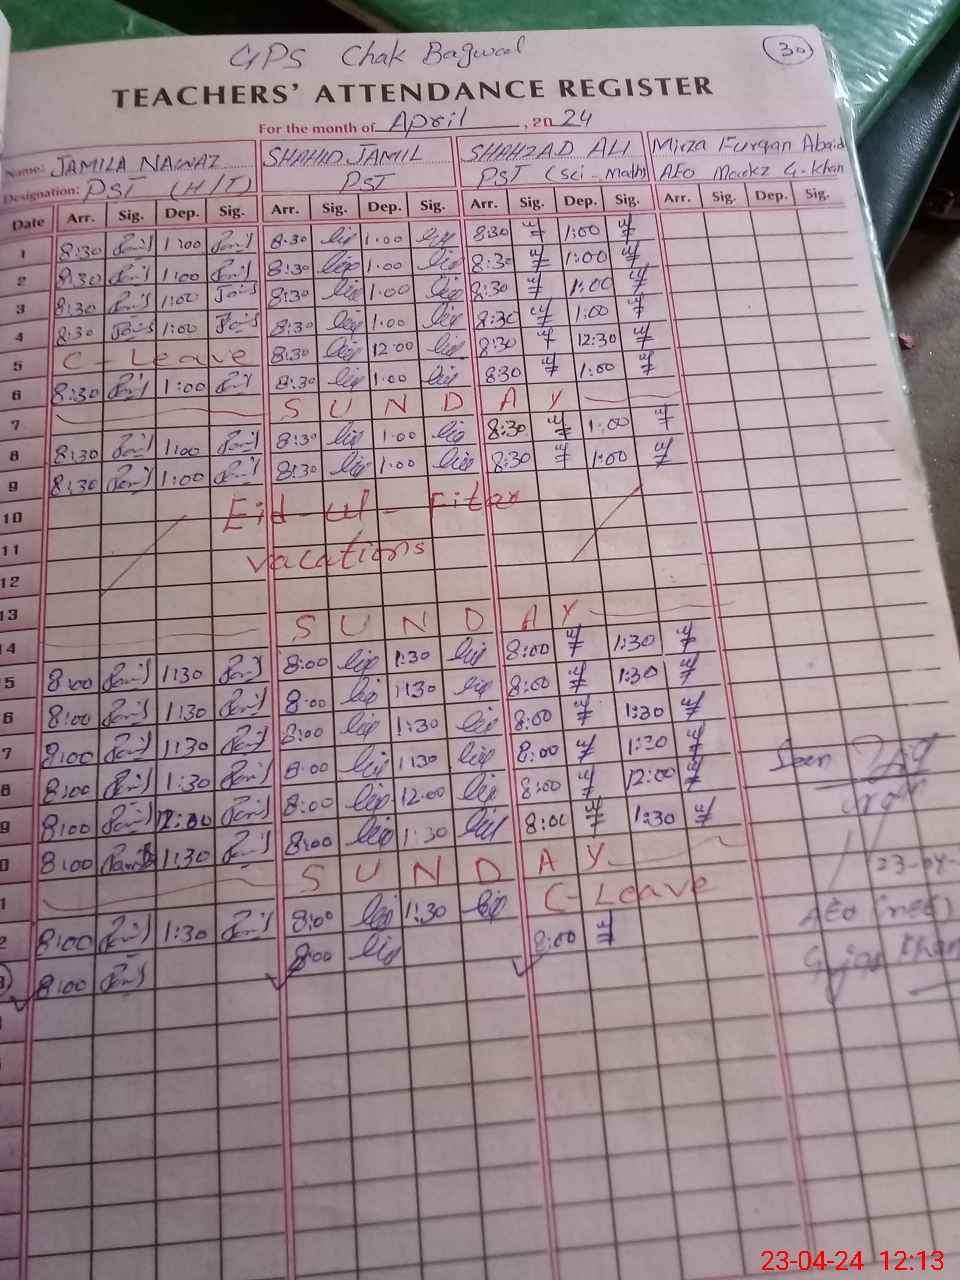 GPS Chak Bagwal
30
TEACHERS' ATTENDANCE REGISTER
For the month of April, 2024
Name: JAMILA NAWAZ SHAHID JAMIL SHAHZAD ALI Mirza Furqan Abaid
Designation: PST (H/T) PST PST (Sci-Math) AEO Markz G-Khan
Date Arr. Sig. Dep. Sig. Arr. Sig. Dep. Sig. Arr. Sig. Dep. Sig. Arr. Sig. Dep. Sig.
1 8:30 1:00 8:30 1:00 8:30 1:00
2 8:30 1:00 8:30 1:00 8:30 1:00
3 8:30 1:00 8:30 1:00 8:30 1:00
4 8:30 1:00 8:30 1:00 8:30 1:00
5 C-Leave 8:30 12:00 8:30 12:30
6 8:30 1:00 8:30 1:00 830 1:00
7 SUNDAY
8 8:30 1:00 8:30 1:00 8:30 1:00
9 8:30 1:00 8:30 1:00 8:30 1:00
10 Eid-ul-Fitar
11 vacations
12
13
14 SUNDAY
5 8:00 1:30 8:00 1:30 8:00 1:30
6 8:00 1:30 8:00 1:30 8:00 1:30
7 8:00 1:30 8:00 1:30 8:00 1:30
8 8:00 1:30 8:00 1:30 8:00 1:30
9 8:00 12:00 8:00 12:00 8:00 12:00
0 8:00 1:30 8:00 1:30 8:00 1:30
1 SUNDAY
2 8:00 1:30 8:00 1:30 C-Leave
3 8:00 8:00 8:00
Seen
23-04-
AEO
Gujar Khan
23-04-24 12:13